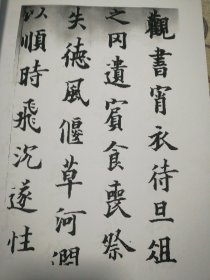 觀書宵衣待旦俎
之内遺賓食喪祭
失德風偃草河潤
以順時飛沉遂性